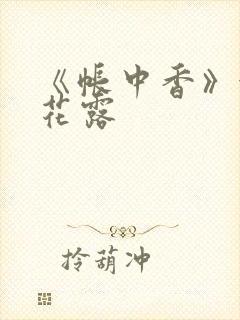 《帳中香》
花露
拎葫冲